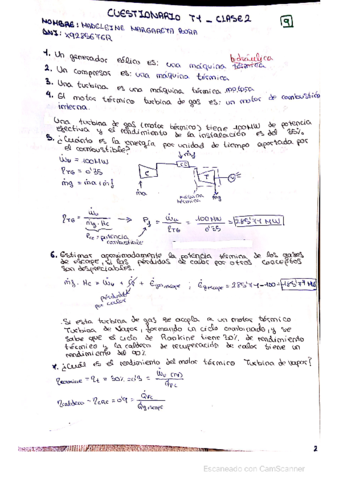 CUESTIONARIO T1 - CLASE 2
9
NOMBRE: MADELEINE MARGARETA BORA
DNI: X9285676R
1. Un generador eólico es: una máquina térmica hidráulica
2. Un compresor es: una máquina térmica
3. Una turbina es una máquina térmica motora
4. El motor térmico turbina de gas es: un motor de combustión
interna
Una turbina de gas (motor térmico) tiene 100MW de potencia
efectiva y el rendimiento de la instalación es del 35%
5. ¿Cuánto es la energía por unidad de tiempo aportada por
el combustible?
Ẇu = 100MW
ηTG = 0'35
ṁg = ṁa + ṁf
C
T
ṁg
ṁa
máquina
térmica
ηTG = Ẇu / ṁf · Hc → Pf = Ẇu / ηTG = 100MW / 0'35 = 285'71 MW
Pf = potencia
combustible
6. Estimar aproximadamente la potencia térmica de los gases
de escape, si las pérdidas de calor por otros conceptos
son despreciables.
pérdidas
por calor
Si esta turbina de gas se acopla a un motor térmico
Turbina de Vapor, formando un ciclo combinado, y se
sabe que el ciclo de Rankine tiene 30% de rendimiento
térmico y la caldera de recuperación de calor tiene un
rendimiento del 90%
7. ¿Cuál es el rendimiento del motor térmico Turbina de vapor?
2
Escaneado con CamScanner